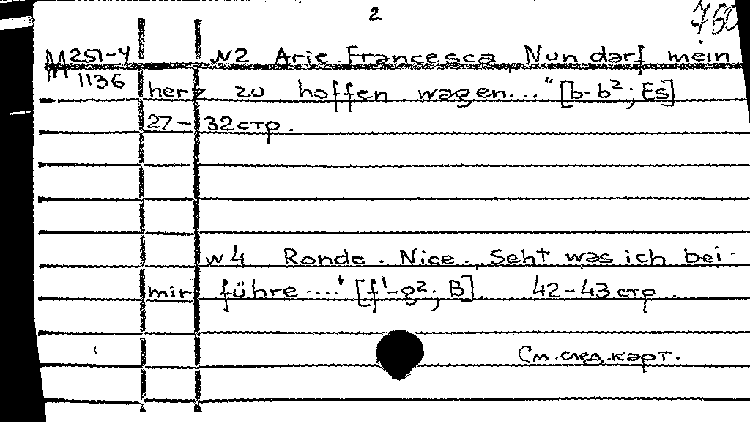 2
760
М 251-4 №2 Arie Francesca „Nun darf mein
1136 herz zu hoffen wagen..." [b-b²; Es]
27-32 стр.
№4 Rondo. Nice. „Seht was ich bei
mir führe...." [f'-g²; B]. 42-43 стр.
См. след. карт.